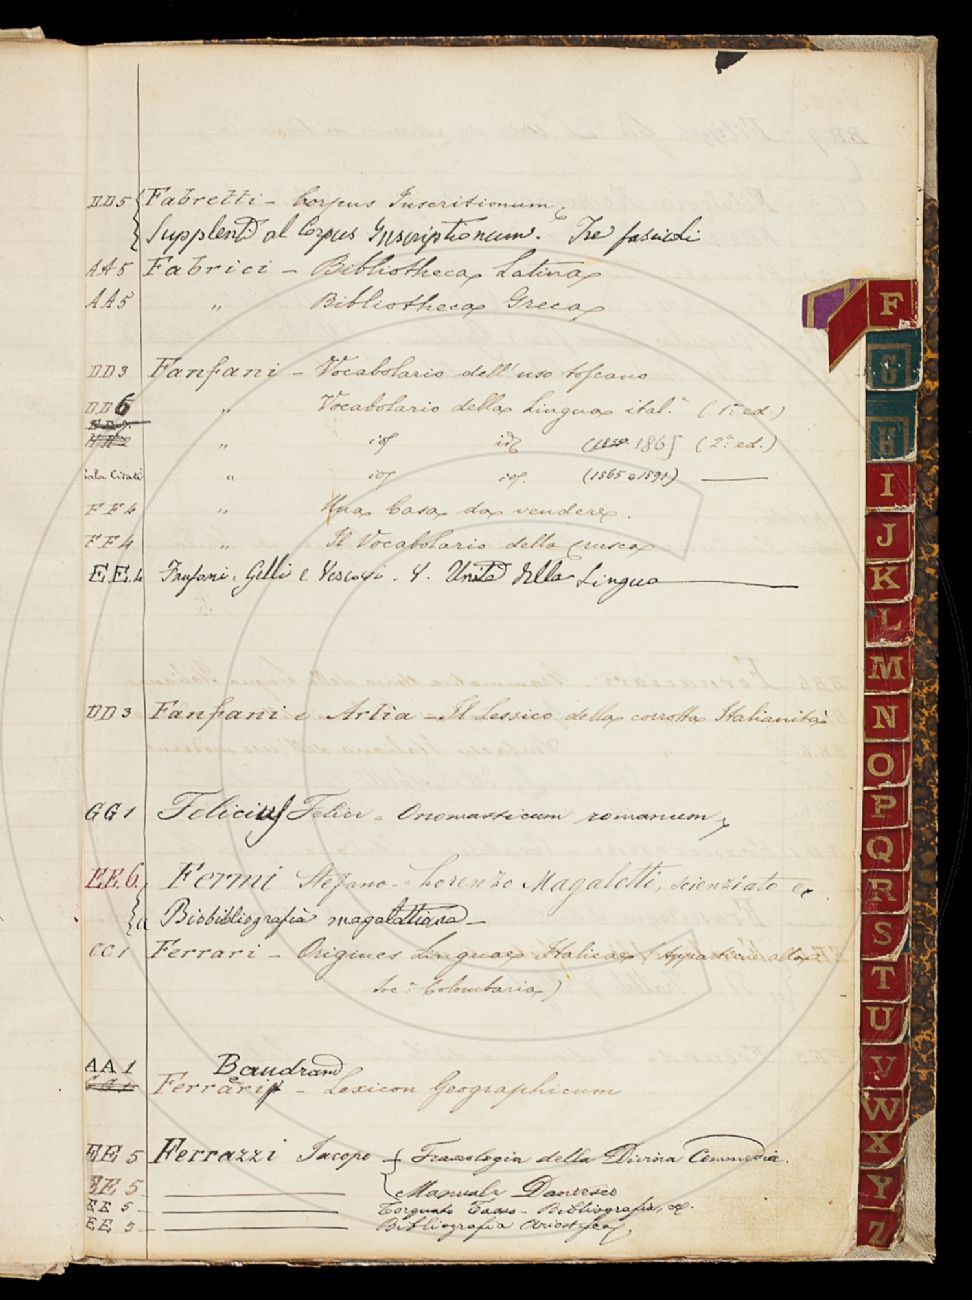 DD5 Fabretti - Corpus Inscritionum
Supplenti al Corpus Inscriptionum. Tre fascicoli
AA5 Fabrici - Bibliotheca Latina
AA5 " Bibliotheca Greca
DD3 Fanfani - Vocabolario dell'uso toscano
DD6 " Vocabolario della Lingua ital.ª (1ª ed.)
" id id 1865 (2ª ed.)
Sala Citati " id id. (1865 e 1891)
FF4 " Una Casa da vendere.
FF4 " Il Vocabolario della Crusca
EE.4 Fanfani, Gelli e . L'Unità della Lingua
DD3 Fanfani e Arlia - Il Lessico della corrotta Italianità
GG1 Felicius Felix - Onomasticum romanum
EE.6. Fermi Stefano - Lorenzo Magalotti, scienziato e
Biobibliografia magalottiana
CC1 Ferrari - Origines Linguae Italicae (Appartiene alla
Soc.ª Colombaria)
AA1 Baudrand
Ferrari - Lexicon Geographicum
EE5 Ferrazzi Jacopo - Fraseologia della Divina Commedia.
EE5 Manuale Dantesco
EE5 Torquato Tasso - Bibliografia, ec.
EE5 Bibliografia Ariostesca
F
G
H
I
J
K
L
M
N
O
P
Q
R
S
T
U
V
W
X
Y
Z